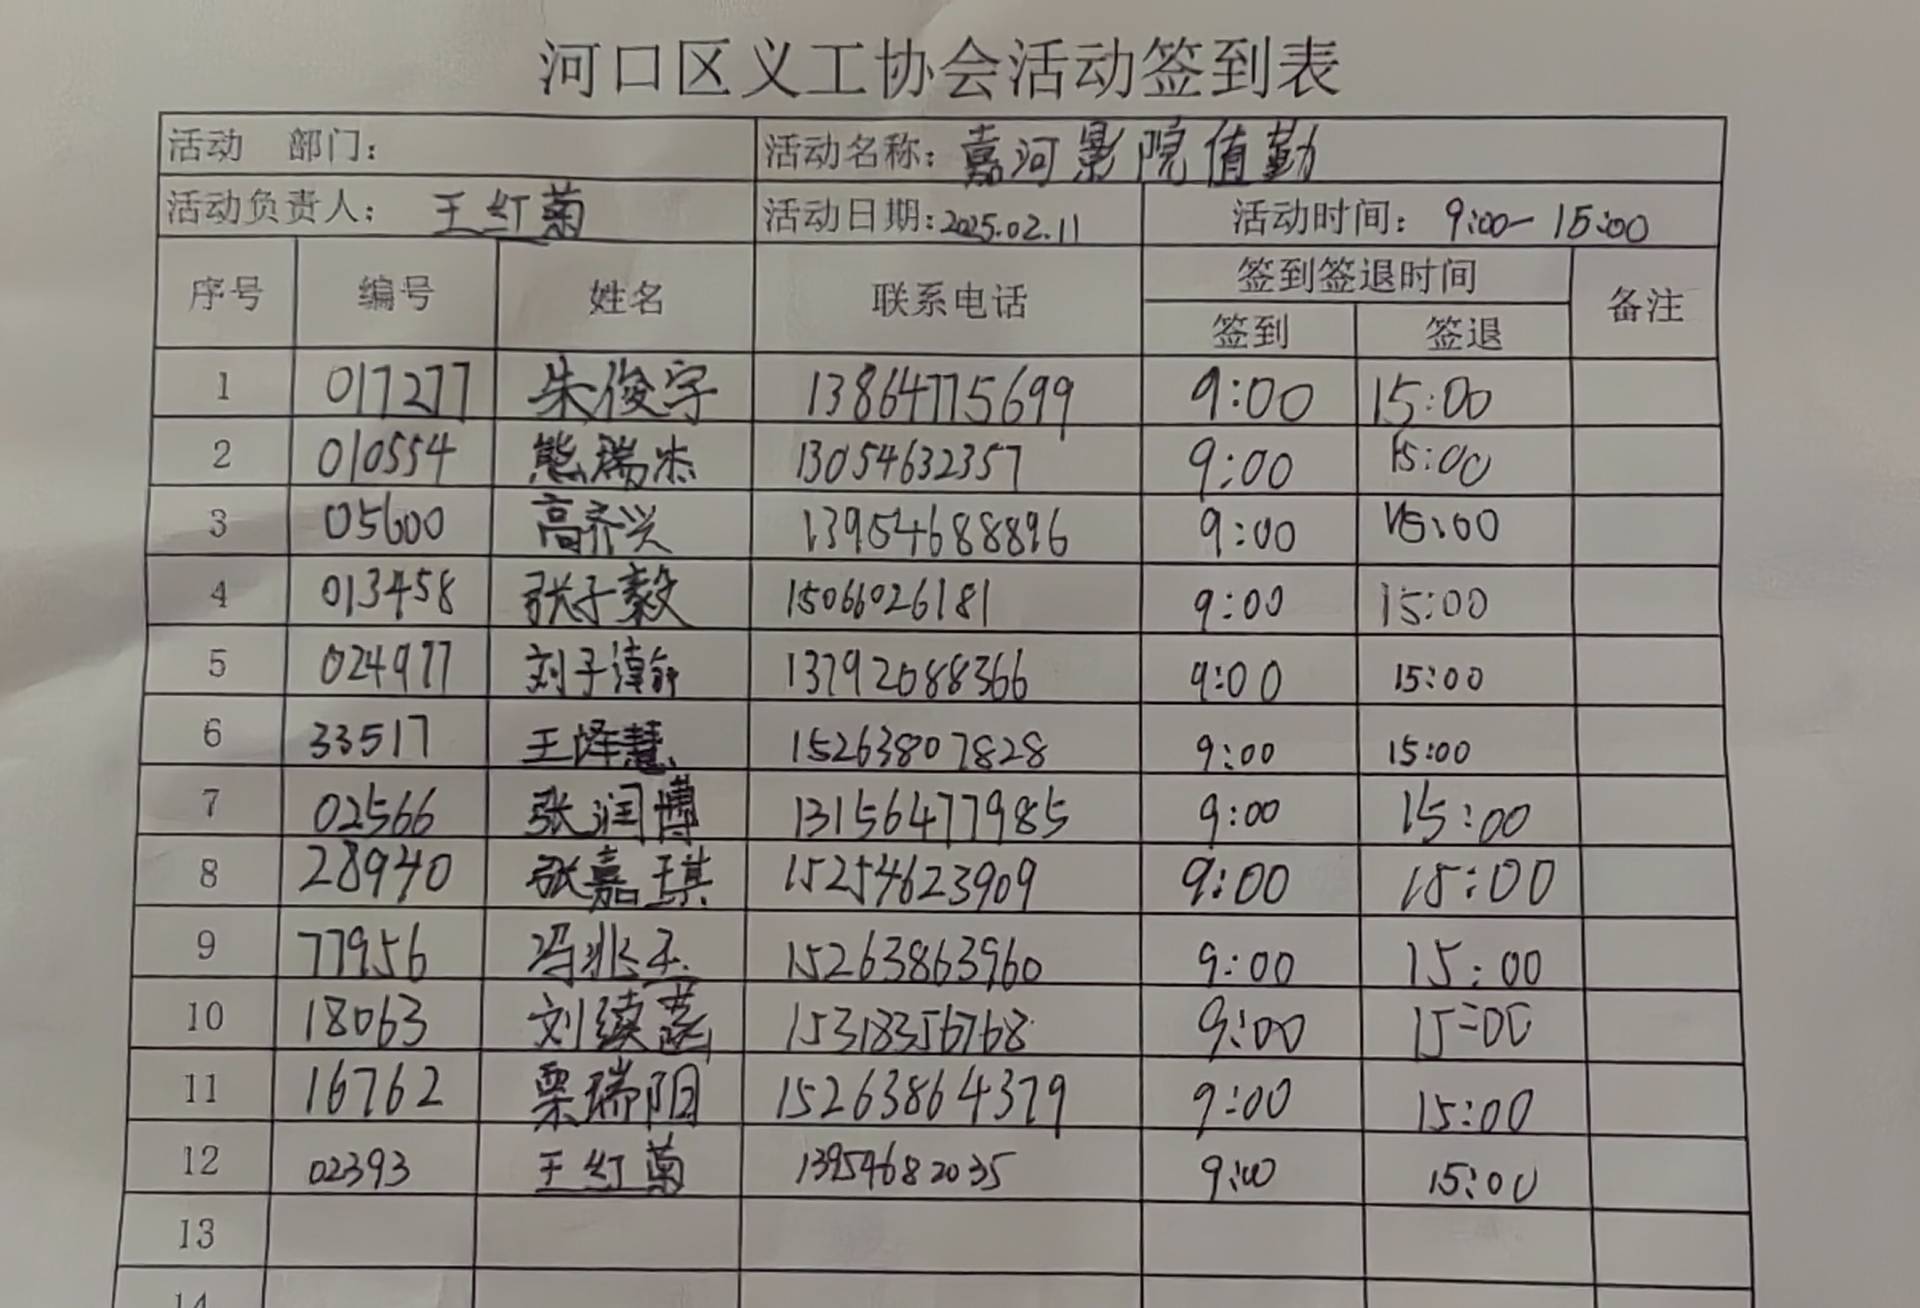 河口区义工协会活动签到表
活动 部门： 活动名称：嘉河影院值勤
活动负责人： 王红菊 活动日期：2025.02.11 活动时间： 9:00-15:00
序号 编号 姓名 联系电话 签到签退时间 备注
签到 签退
1 017277 朱俊宇 13864775699 9:00 15:00
2 010554 熊瑞杰 13054632357 9:00 15:00
3 05600 高齐兴 13954688896 9:00 15:00
4 013458 张子毅 15066026181 9:00 15:00
5 024977 刘子 13792088366 9:00 15:00
6 33517 王泽慧 15263807828 9:00 15:00
7 02566 张润博 13156477985 9:00 15:00
8 28940 张嘉琪 15254623909 9:00 15:00
9 77956 冯兆玉 15263863960 9:00 15:00
10 18063 刘续 15318356768 9:00 15:00
11 16762 栗瑞阳 15263864379 9:00 15:00
12 02393 王红菊 13954682035 9:00 15:00
13
14